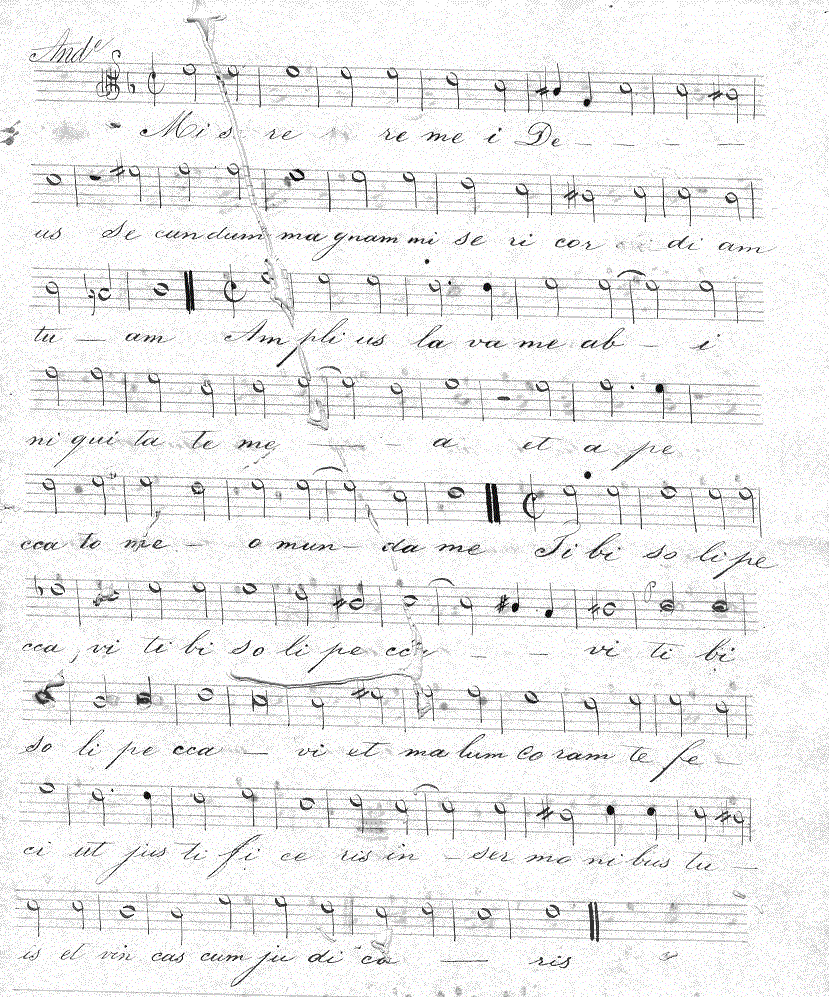 Andᵉ
Mi se re re me i De - - - -
us Se cun dum ma gnam mi se ri cor di am
tu - am Am pli us la va me ab - i
ni qui ta te me - - a et a pe
cca to me - o mun - da me Ti bi so li pe
cca vi ti bi so li pe cca - - vi ti bi
so li pe cca - vi et ma lum co ram te fe -
ci ut jus ti fi ce ris in - ser mo ni bus tu -
is et vin cas cum ju di ca - ris